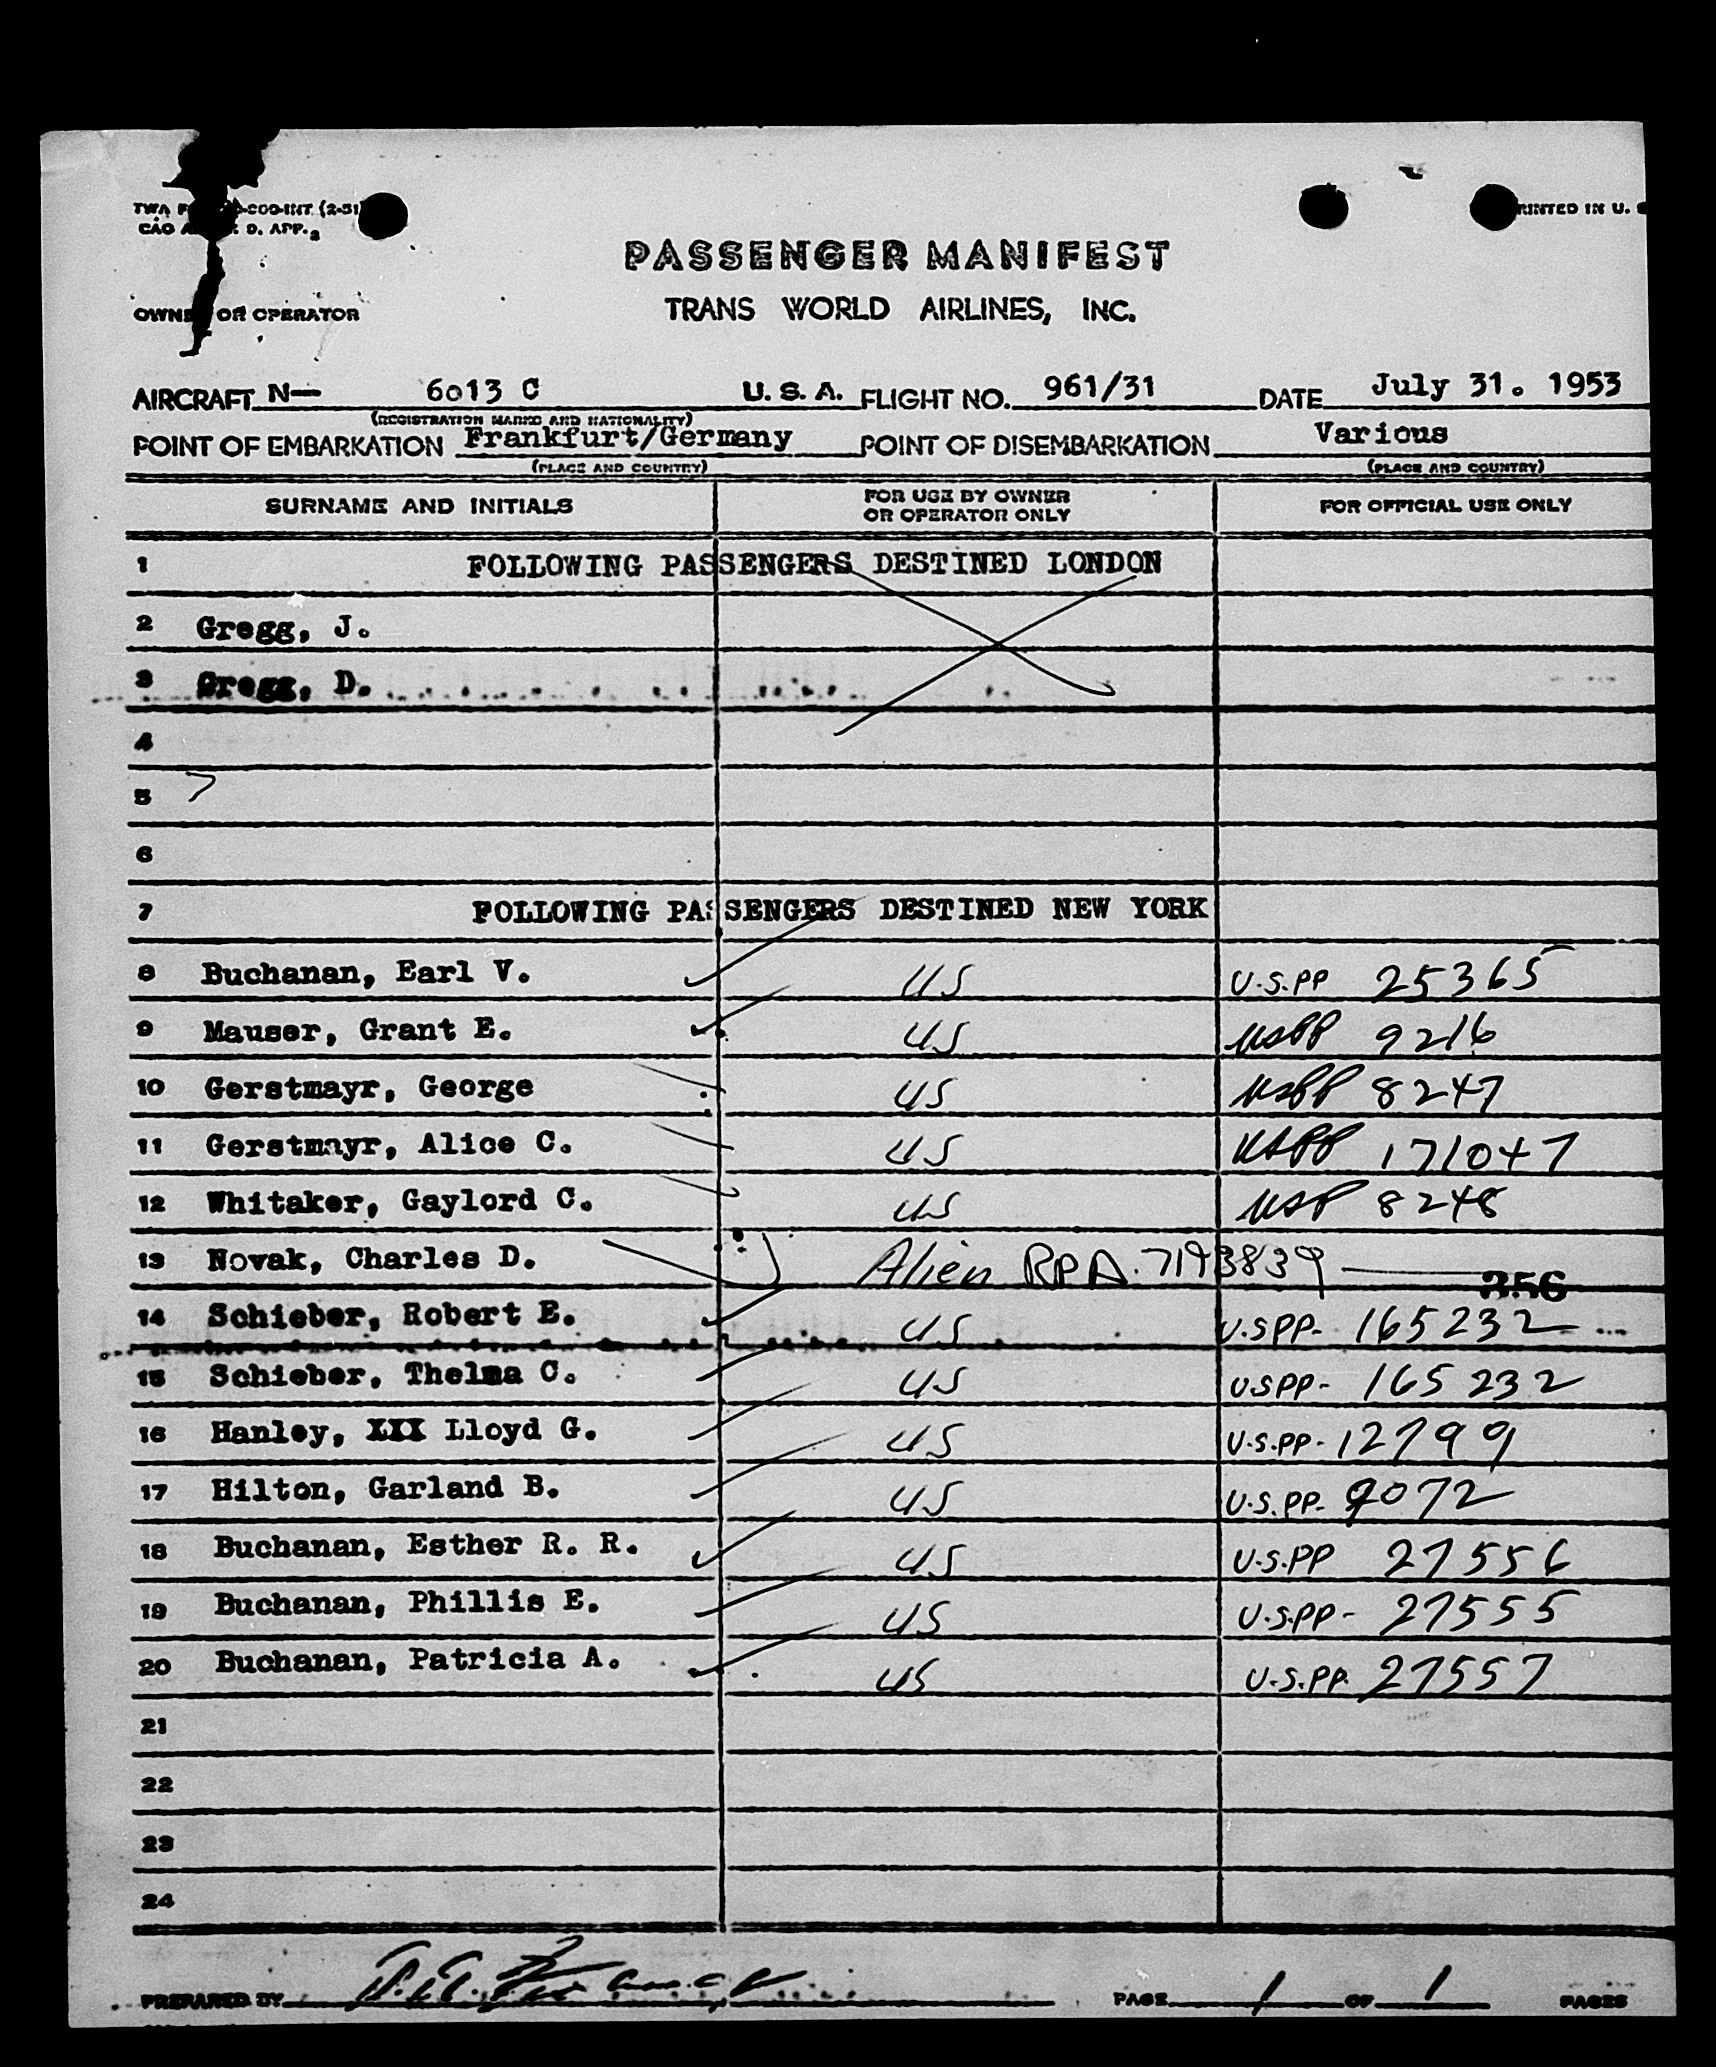 TWA F -COO-INT. (2-51)
CAO A D. APP. 2
PRINTED IN U. S
PASSENGER MANIFEST
TRANS WORLD AIRLINES, INC.
OWNER OR OPERATOR
AIRCRAFT N— 6013 C U. S. A. FLIGHT NO. 961/31 DATE July 31. 1953
(REGISTRATION MARKS AND NATIONALITY)
POINT OF EMBARKATION Frankfurt/Germany POINT OF DISEMBARKATION Various
(PLACE AND COUNTRY) (PLACE AND COUNTRY)
SURNAME AND INITIALS FOR USE BY OWNER OR OPERATOR ONLY FOR OFFICIAL USE ONLY
1 FOLLOWING PASSENGERS DESTINED LONDON
2 Gregg, J.
3 Gregg, D.
4
5
6
7 FOLLOWING PASSENGERS DESTINED NEW YORK
8 Buchanan, Earl V. US U.S.PP 25365
9 Mauser, Grant E. US USPP 9216
10 Gerstmayr, George US USPP 8247
11 Gerstmayr, Alice C. US USPP 171047
12 Whitaker, Gaylord C. US USP 8248
13 Novak, Charles D. Alien RPA. 7193839 — 356
14 Schieber, Robert E. US U.SPP- 165232
15 Schieber, Thelma C. US USPP- 165232
16 Hanley, XXX Lloyd G. US U.S.PP- 12799
17 Hilton, Garland B. US U.S.PP- 9072
18 Buchanan, Esther R. R. US U.S.PP 27556
19 Buchanan, Phillis E. US U.S.PP- 27555
20 Buchanan, Patricia A. US U.S.PP. 27557
21
22
23
24
PREPARED BY PAGE 1 OF 1 PAGES